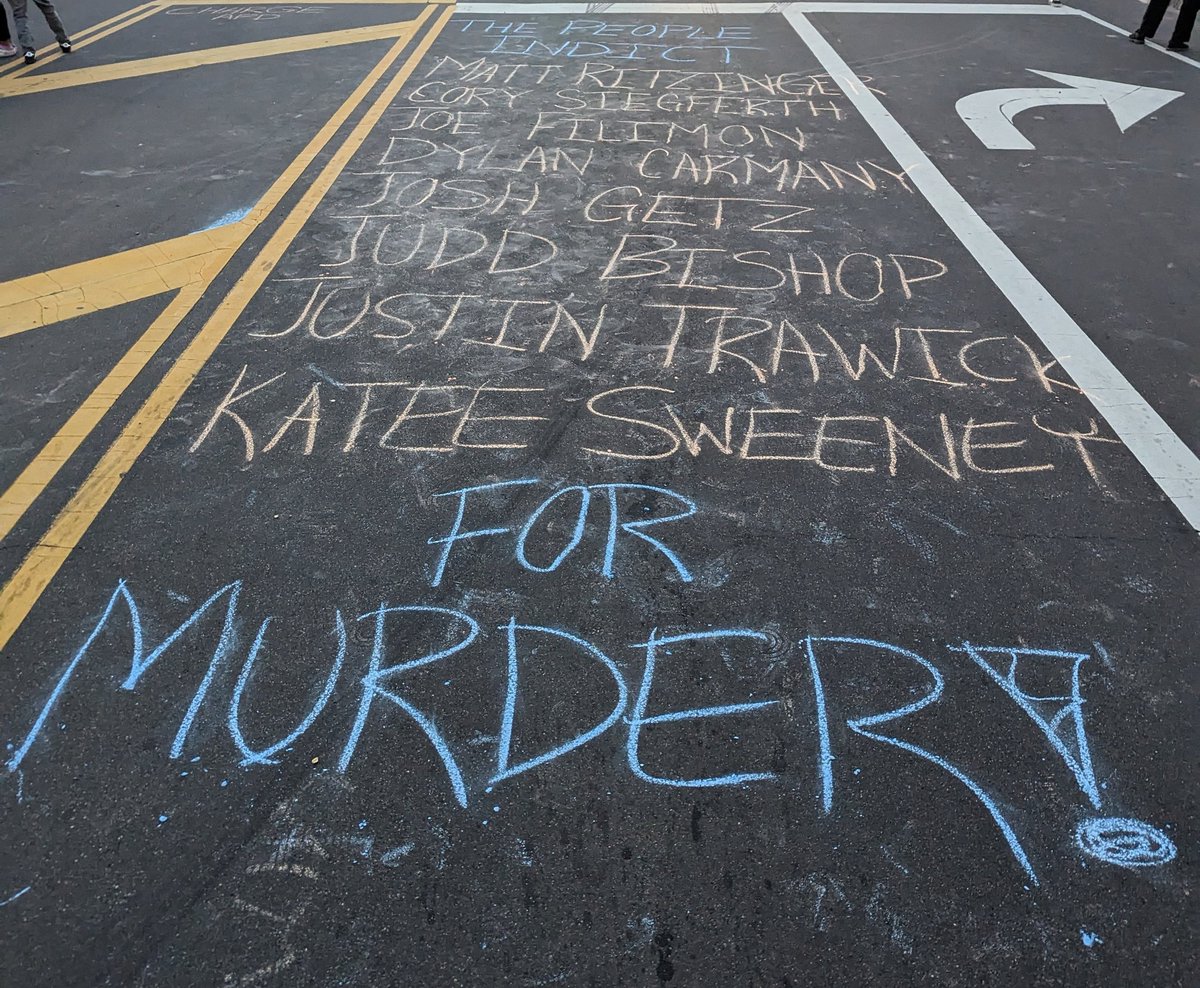 CHARGE
APD
THE PEOPLE
INDICT
MATT RITZINGER
CORY SIEGFERTH
JOE FILIMON
DYLAN CARMANY
JOSH GETZ
JUDD BISHOP
JUSTIN TRAWICK
KATEE SWEENEY
FOR
MURDER!